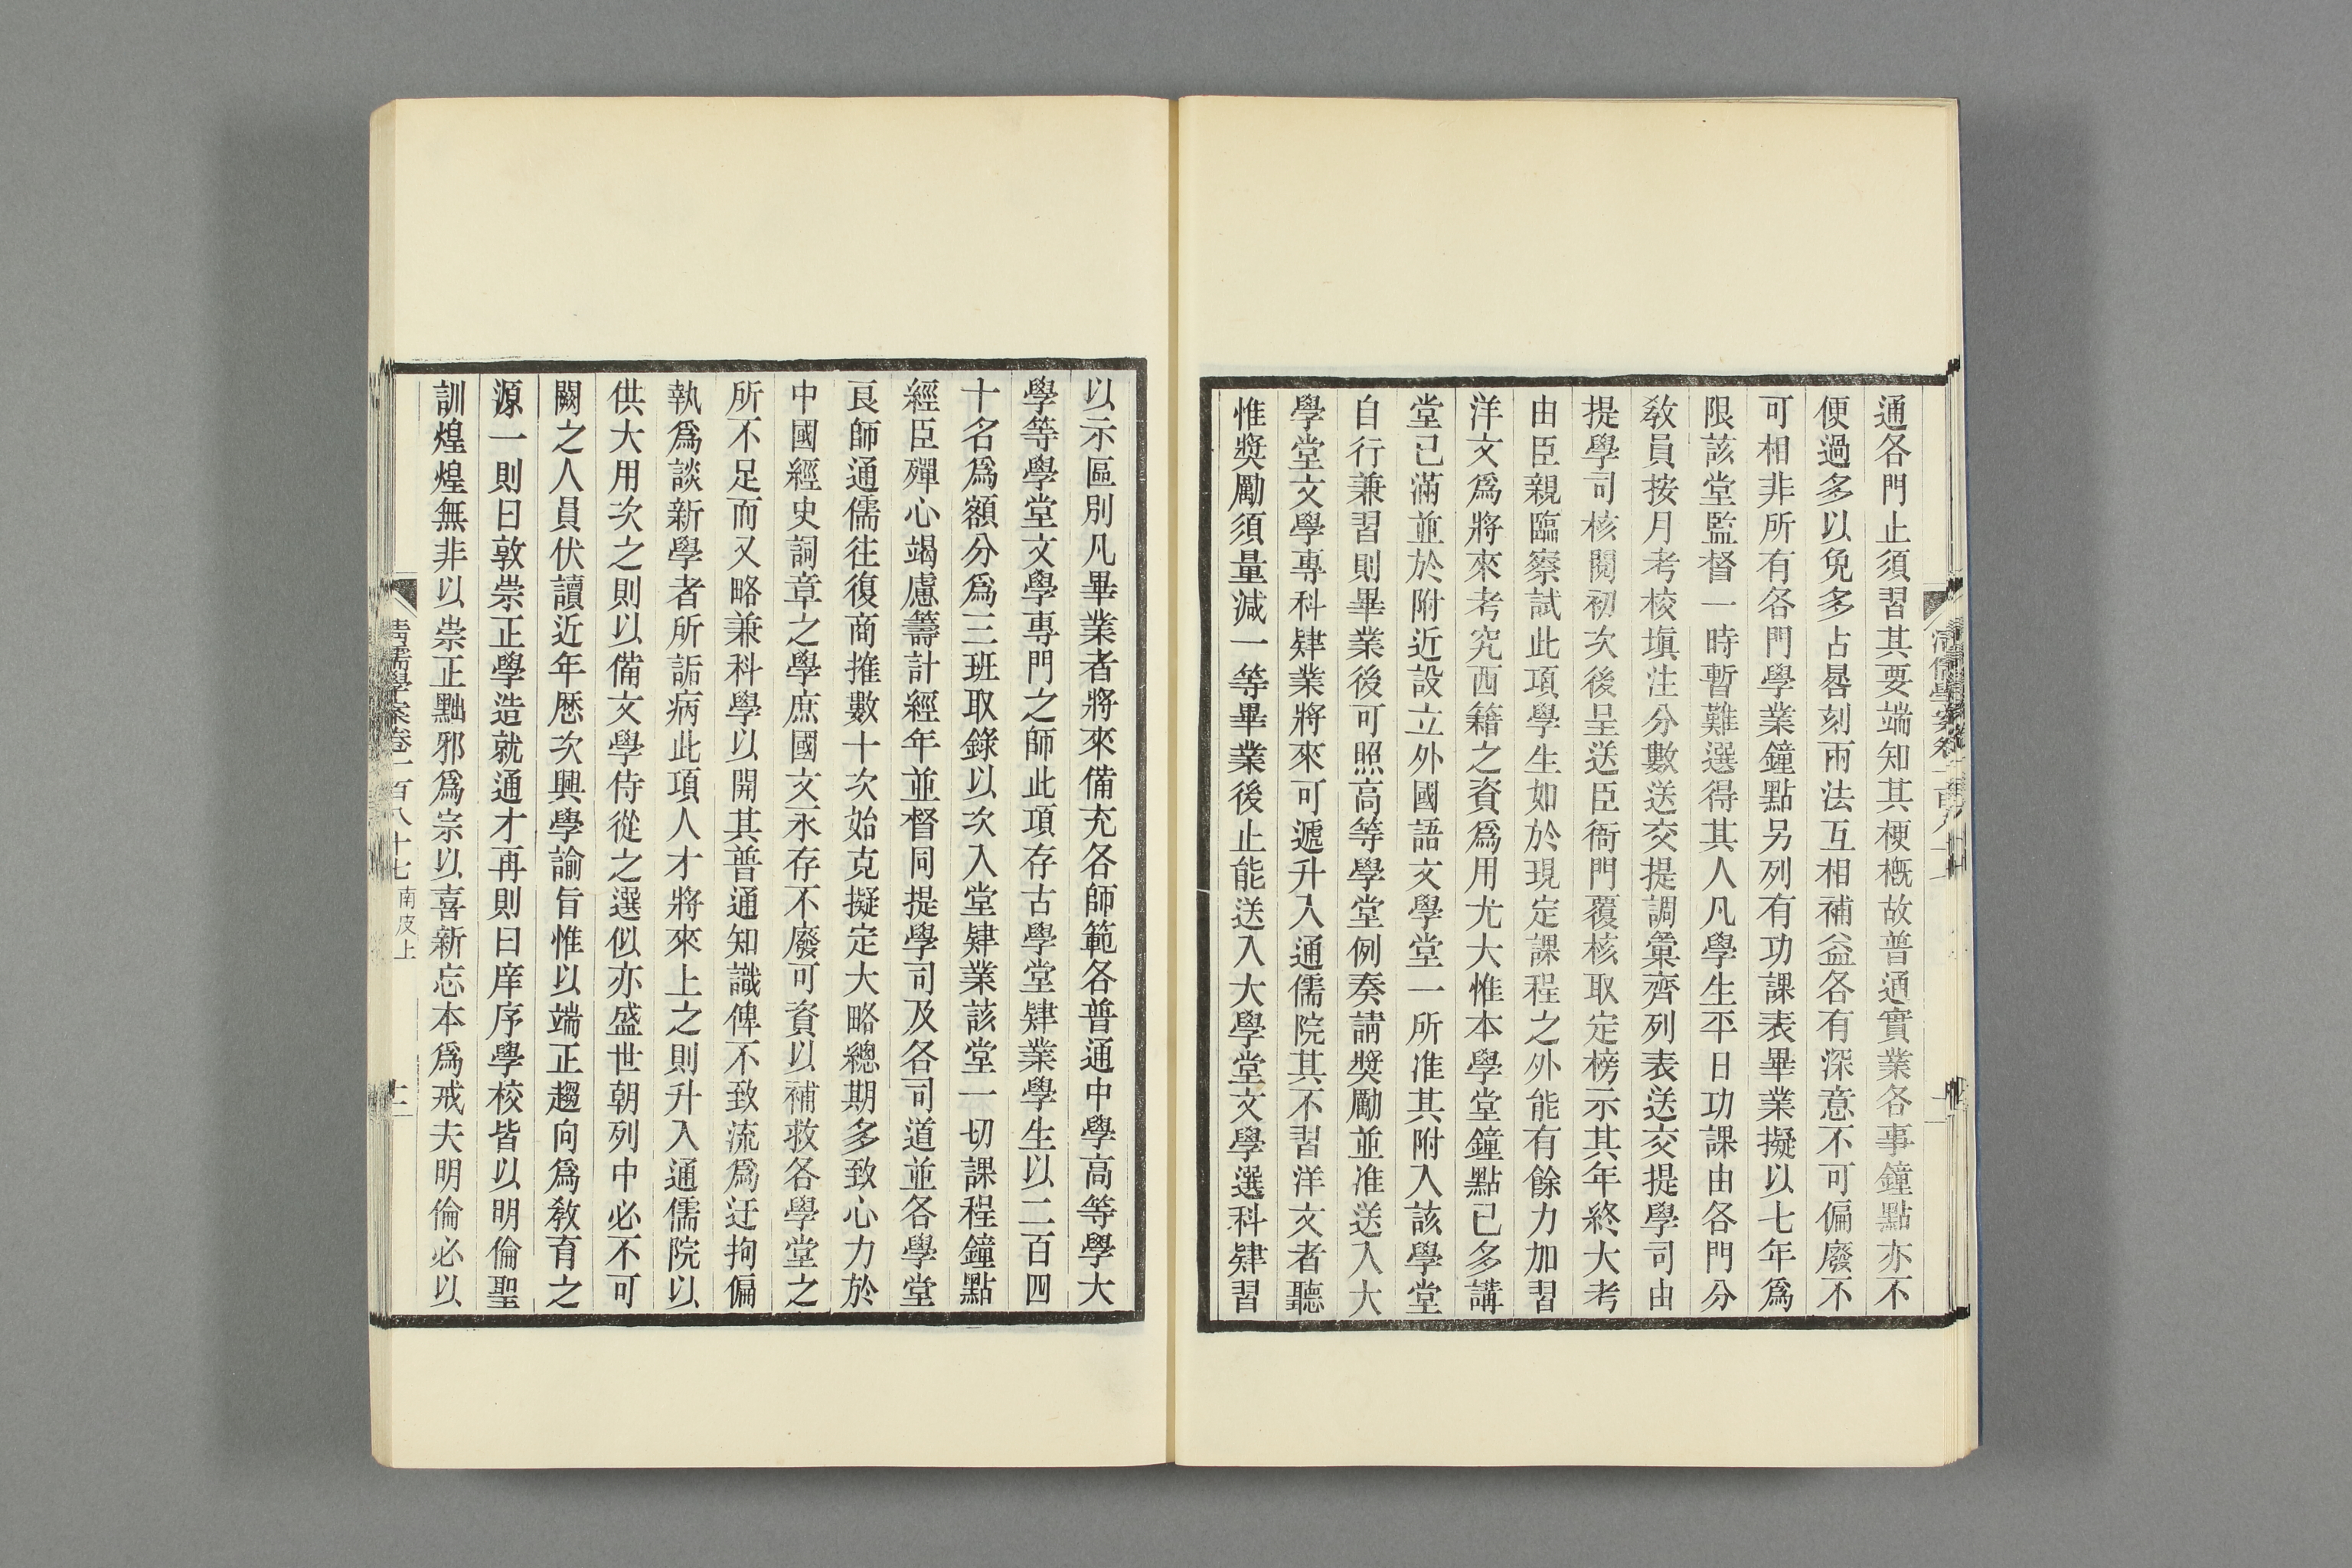 通各門止須習其要端知其梗概故普通實業各事鐘點亦不
便過多以免多占晷刻兩法互相補益各有深意不可偏廢不
可相非所有各門學業鐘點另列有功課表畢業擬以七年爲
限該堂監督一時暫難選得其人凡學生平日功課由各門分
教員按月考校塡注分數送交提調彙齊列表送交提學司由
提學司核閱初次後呈送臣衙門覆核取定榜示其年終大考
由臣親臨察試此項學生如於現定課程之外能有餘力加習
洋文爲將來考究西籍之資爲用尤大惟本學堂鐘點已多講
堂已滿並於附近設立外國語文學堂一所准其附入該學堂
自行兼習則畢業後可照高等學堂例奏請獎勵並准送入大
學堂文學專科肄業將來可遞升入通儒院其不習洋文者聽
惟獎勵須量減一等畢業後止能送入大學堂文學選科肄習
以示區別凡畢業者將來備充各師範各普通中學高等學大
學等學堂文學專門之師此項存古學堂肄業學生以二百四
十名爲額分爲三班取錄以次入堂肄業該堂一切課程鐘點
經臣殫心竭慮籌計經年並督同提學司及各司道並各學堂
良師通儒往復商推數十次始克擬定大略總期多致心力於
中國經史詞章之學庶國文永存不廢可資以補救各學堂之
所不足而又略兼科學以開其普通知識俾不致流爲迂拘偏
執爲談新學者所詬病此項人才將來上之則升入通儒院以
供大用次之則以備文學侍從之選似亦盛世朝列中必不可
闕之人員伏讀近年歷次興學諭旨惟以端正趨向爲教育之
源一則曰敦崇正學造就通才再則曰庠序學校皆以明倫聖
訓煌煌無非以崇正黜邪爲宗以喜新忘本爲戒夫明倫必以
清儒學案卷一百八十七 南皮上 十二